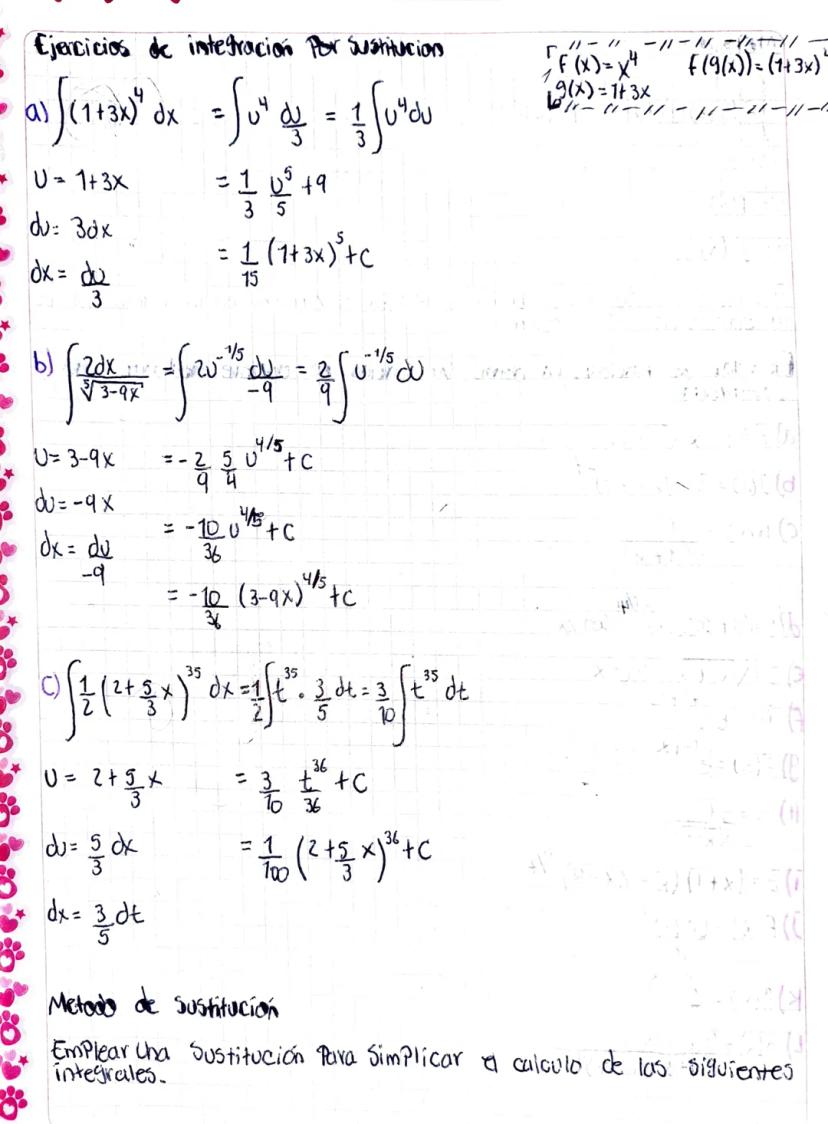 Ejercicios de integración Por Sustitucion
f(x)=x⁴ f(g(x))=(1+3x)⁴
g(x)=1+3x
a) ∫(1+3x)⁴ dx = ∫u⁴ du/3 = 1/3 ∫u⁴du
U = 1+3x = 1/3 u⁵/5 +9
du= 3dx
= 1/15 (1+3x)⁵+C
dx = du/3
b) ∫ 2dx/⁵√(3-9x) = ∫2u^(-1/5) du/-9 = 2/9 ∫u^(-1/5) du
U= 3-9x = -2/9 5/4 u^(4/5)+C
du= -9x
= -10/36 u^(4/5)+C
dx = du/-9
= -10/36 (3-9x)^(4/5)+C
c) ∫1/2 (2+5/3 x)³⁵ dx = 1/2 ∫t³⁵ · 3/5 dt = 3/10 ∫t³⁵ dt
U = 2+5/3 x = 3/10 t³⁶/36 +C
du= 5/3 dx = 1/100 (2+5/3 x)³⁶+C
dx= 3/5 dt
Metodo de Sustitución
Emplear una Sustitución Para Simplicar el calculo de las siguientes
integrales.